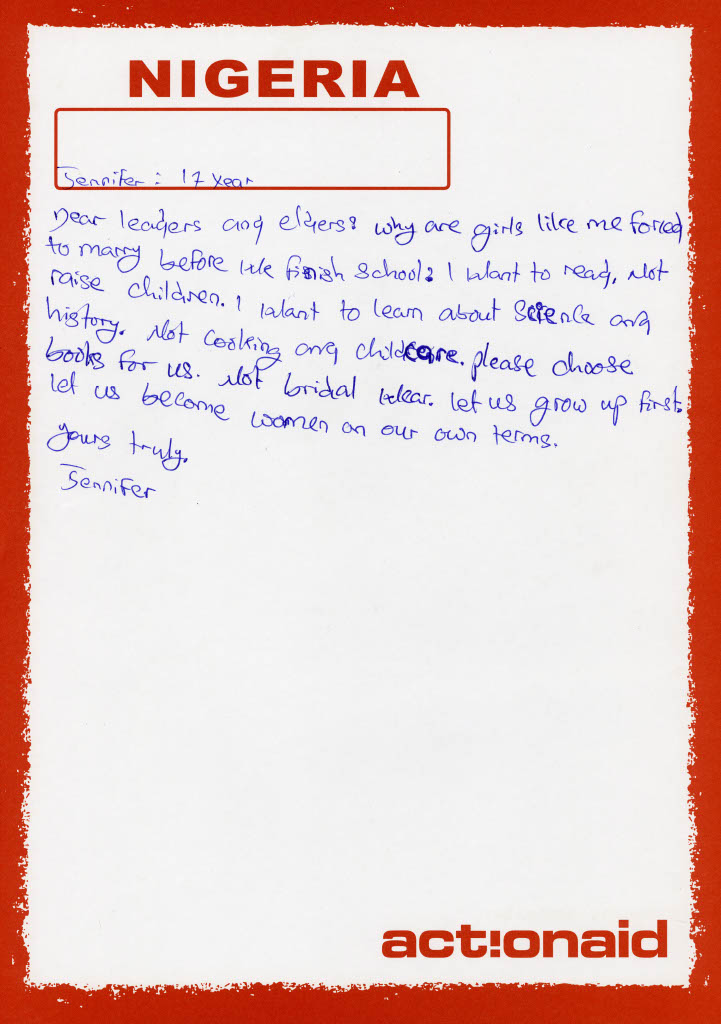 NIGERIA
Jennifer: 17 year
Dear leaders and elders? why are girls like me forced
to marry before we finish school? I want to read, Not
raise children. I want to learn about Science and
history. Not cooking and childcare. please choose
books for us. Not bridal wear. let us grow up first.
let us become women on our own terms.
yours truly,
Jennifer
act!onaid